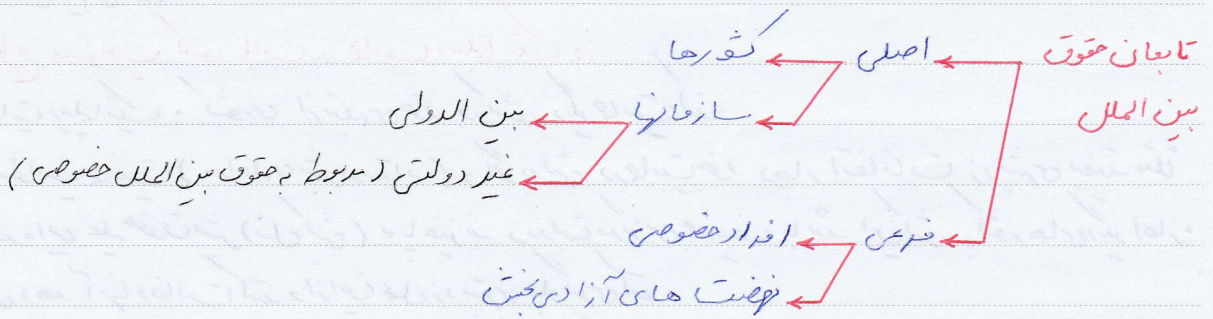 تابعان حقوق اصلی کشورها
بین الملل سازمانها بین الدولی
غیر دولتی (مربوط به حقوق بین الملل خصوصی)
فرعی افراد خصوصی
نهضت های آزادی بخش